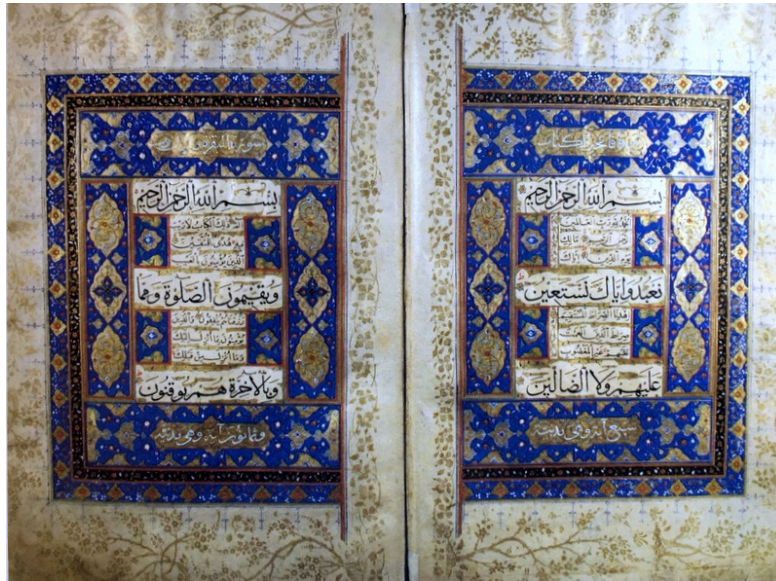 فاتحة الكتاب
بسم الله الرحمن الرحيم
الحمد لله رب العالمين
الرحمن الرحيم مالك
يوم الدين إياك
نعبد وإياك نستعين
اهدنا الصراط المستقيم
صراط الذين أنعمت
عليهم غير المغضوب
عليهم ولا الضالين
سبع آية وهي مدنية
سورة البقرة
بسم الله الرحمن الرحيم
الم ذلك الكتاب لا ريب
فيه هدى للمتقين
الذين يؤمنون بالغيب
ويقيمون الصلوة ومما
رزقناهم ينفقون والذين
يؤمنون بما أنزل إليك
وما أنزل من قبلك
وبالآخرة هم يوقنون
آية وهي مدنية